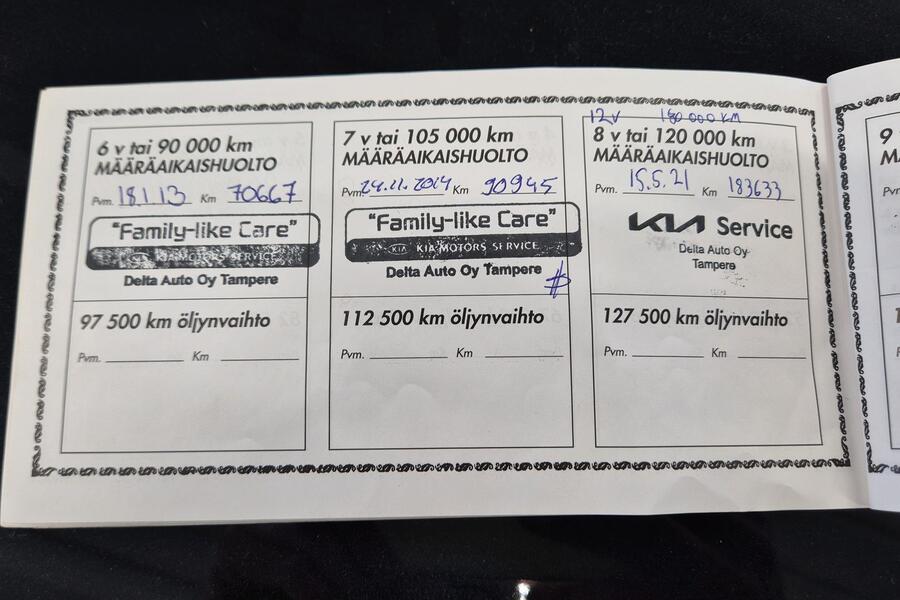 6 v tai 90 000 km
MÄÄRÄAIKAISHUOLTO
Pvm. 18.1.13 Km 70667
"Family-like Care"
KIA MOTORS SERVICE
Delta Auto Oy Tampere
97 500 km öljynvaihto
Pvm. Km
7 v tai 105 000 km
MÄÄRÄAIKAISHUOLTO
Pvm. 24.11.2014 Km 90945
"Family-like Care"
KIA KIA MOTORS SERVICE
Delta Auto Oy Tampere
112 500 km öljynvaihto
Pvm. Km
12v 180 000 KM
8 v tai 120 000 km
MÄÄRÄAIKAISHUOLTO
Pvm. 15.5.21 Km 183633
KIA Service
Delta Auto Oy
Tampere
127 500 km öljynvaihto
Pvm. Km
9